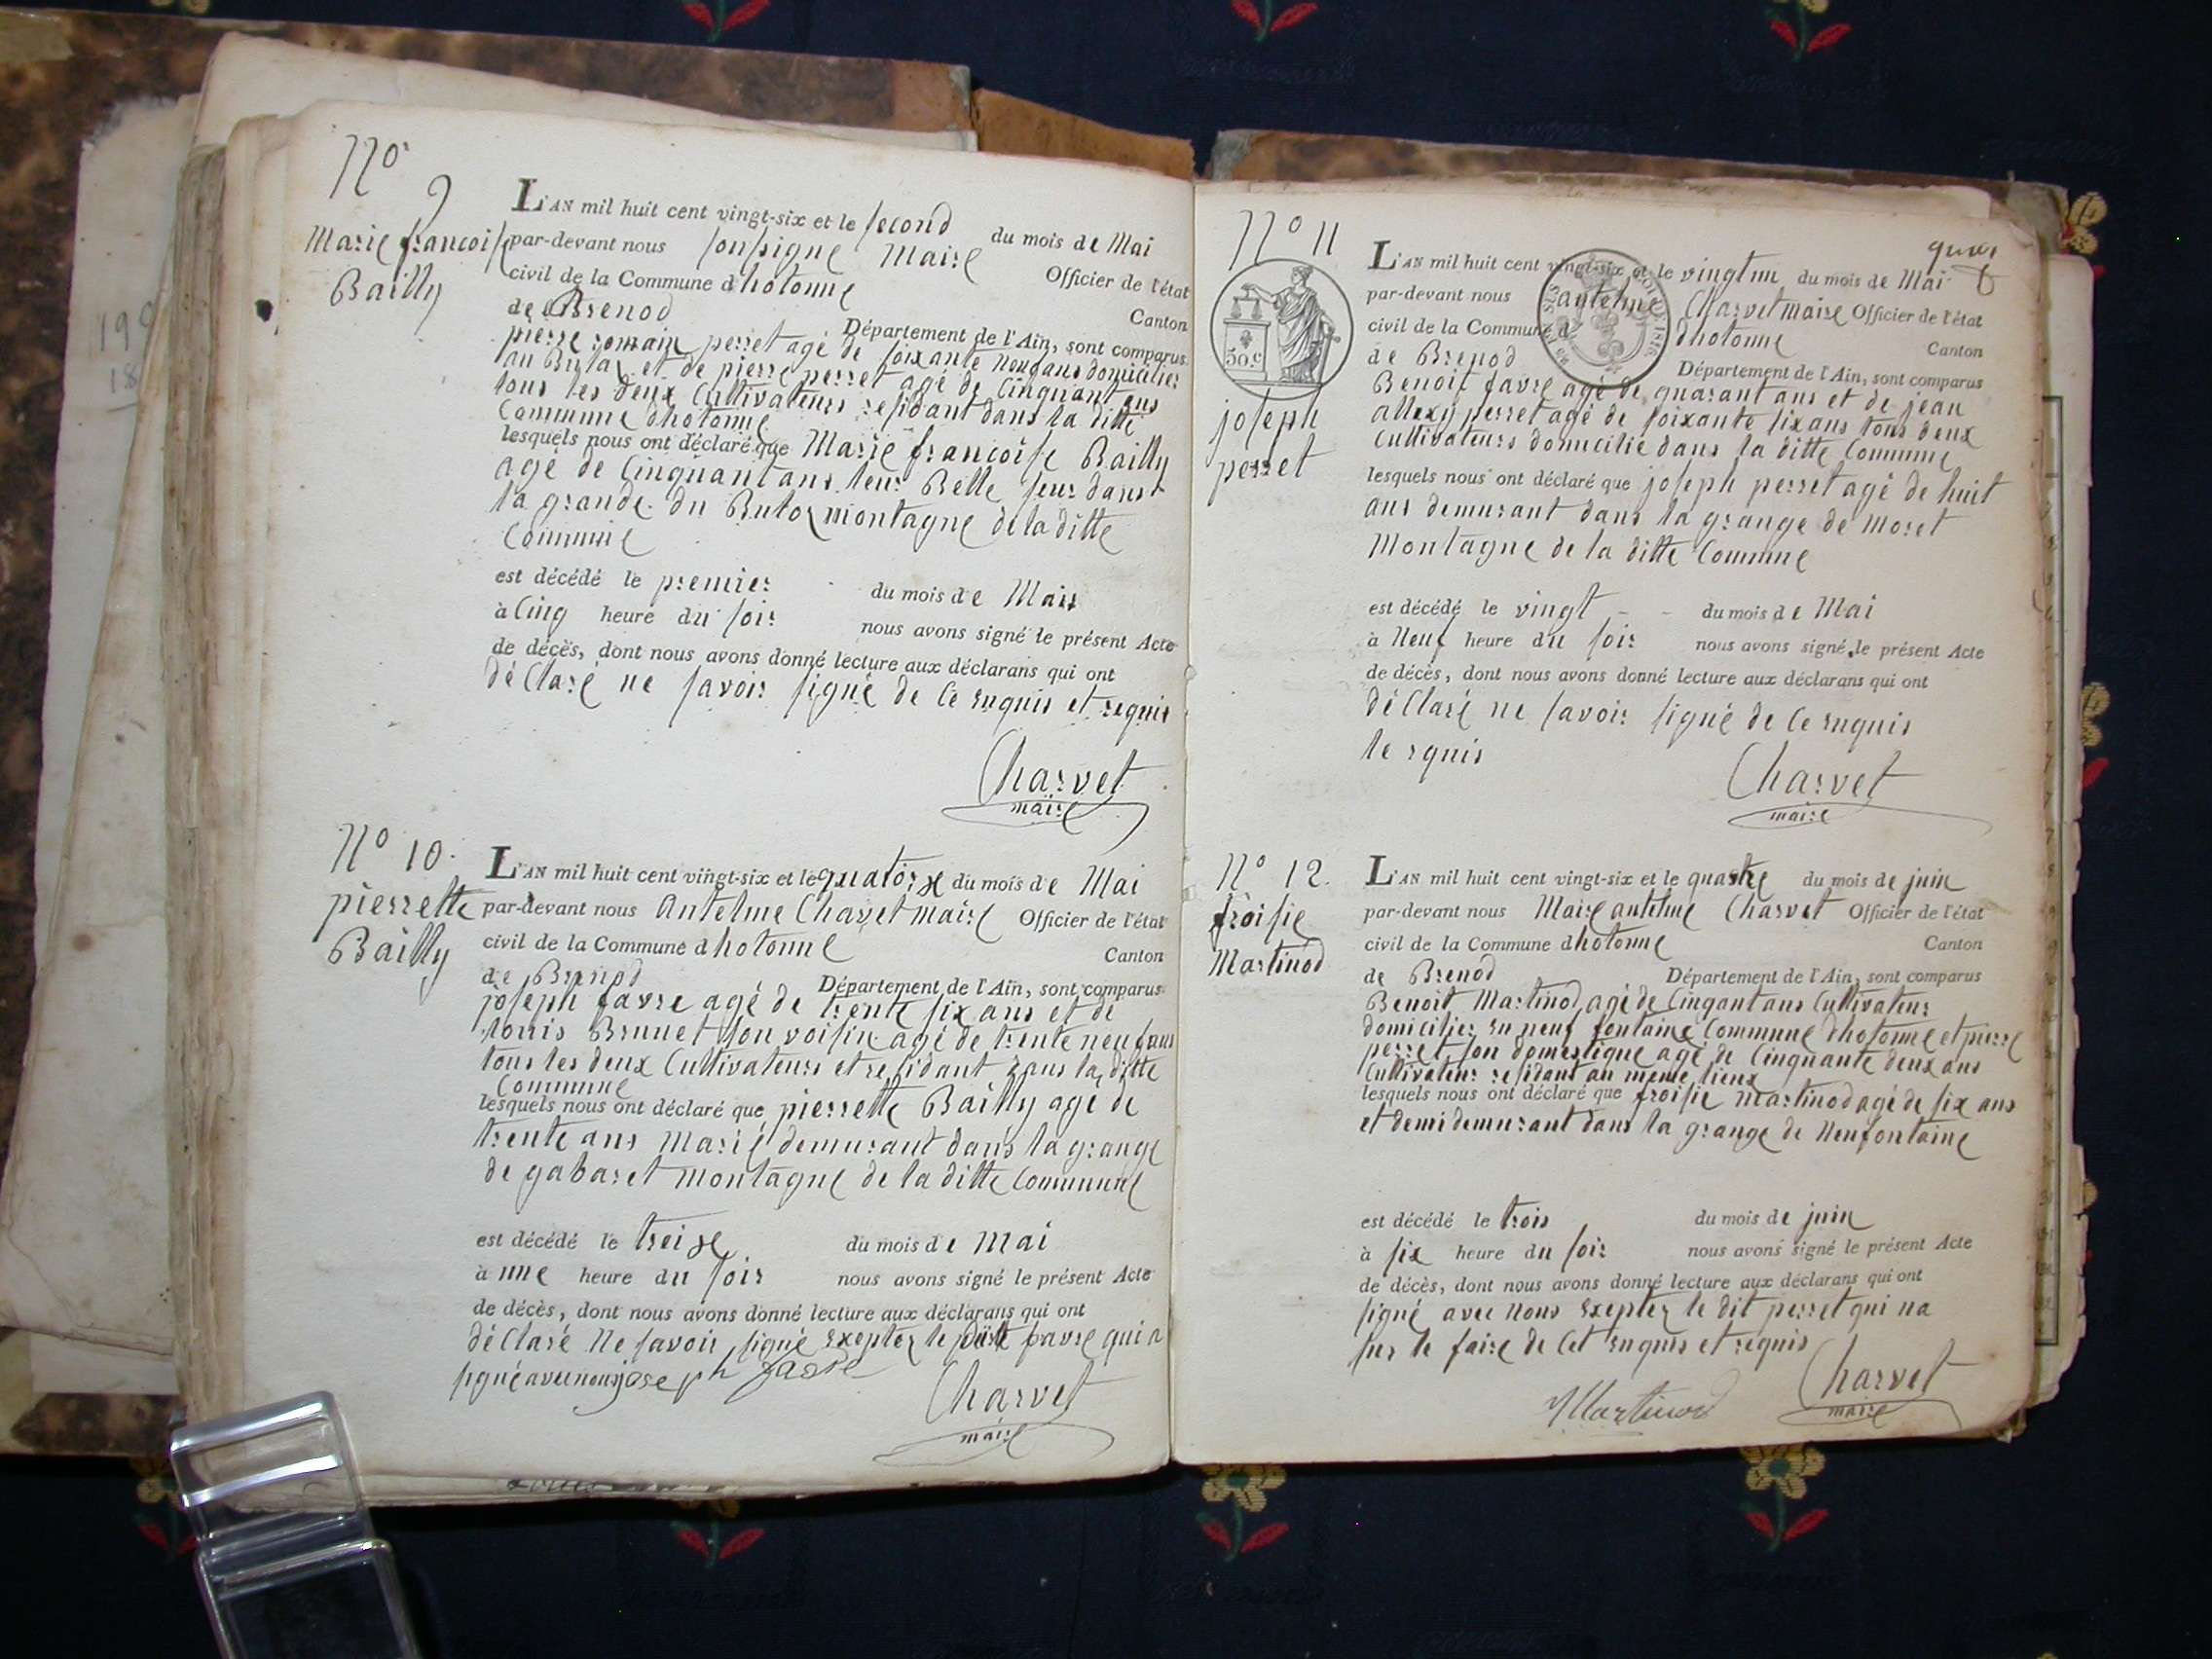 N° 9
Marie francoise
Bailly
L'AN mil huit cent vingt-six et le second du mois de Mai
par-devant nous sonsigne Maire Officier de l'état
civil de la Commune dhotonne Canton
de Brenod Département de l'Ain, sont comparus
pierre romain perret agé de soixante neuf ans domicilier
au et de pierre perret agé de Cinquant ans
tous les deux Cultivateurs residant dans la ditte
Commune dhotonne
lesquels nous ont déclaré que Marie francoise Bailly
agé de Cinquant ans leur Belle seur dans
la grande du montagne de la ditte
Commune
est décédé le premier du mois de Mais
à Cinq heure du soir nous avons signé le présent Acte
de décès, dont nous avons donné lecture aux déclarans qui ont
déClaré ne savoir signé de Ce enquis et requis
Charvet
maire
N° 10.
pierrette
Bailly
L'AN mil huit cent vingt-six et le quatorze du mois de Mai
par-devant nous Antelme Chavet maire Officier de l'état
civil de la Commune dhotonne Canton
de Brenod Département de l'Ain, sont comparus
joseph favre agé de trente six ans et de
louis Brunet son voisin agé de trente neuf ans
tous les deux Cultivateurs et residant dans la ditte
Commune
lesquels nous ont déclaré que pierrette Bailly agé de
trente ans marié demurant dans la grange
de gabaret montagne de la ditte Commune
est décédé le treize du mois de Mai
à une heure du soir nous avons signé le présent Acte
de décès, dont nous avons donné lecture aux déclarans qui ont
déClaré Ne savoir signé exepter le favre qui a
signé avec nous joseph favre
Charvet
maire
N° 11
30.c
joseph
perret
L'AN mil huit cent vingt-six et le vingt un du mois de Mai
par-devant nous antelme Charvet maire Officier de l'état
civil de la Commune dhotonne Canton
de Brenod Département de l'Ain, sont comparus
Benoit favre agé de quarant ans et de jean
allexy perret agé de soixante six ans tous deux
Cultivateurs domicilié dans la ditte Commune
lesquels nous ont déclaré que joseph perret agé de huit
ans demurant dans la grange de moret
Montagne de la ditte Commune
est décédé le vingt du mois de Mai
à Neuf heure du soir nous avons signé le présent Acte
de décès, dont nous avons donné lecture aux déclarans qui ont
déClaré ne savoir signé de Ce enquis
le rquis
Charvet
maire
N° 12.
froisie
Martinod
L'AN mil huit cent vingt-six et le quastre du mois de juin
par-devant nous Maire antelme Charvet Officier de l'état
civil de la Commune dhotonne Canton
de Brenod Département de l'Ain, sont comparus
Benoit Martinod agé de Cinqant ans Cultivateur
domicilier en neuf fontaine Commune dhotonne et pierre
perret son domestique agé de Cinquante deux ans
Cultivateur residant au meme lieux
lesquels nous ont déclaré que froisie Martinod agé de six ans
et demi demurant dans la grange de Neufontaine
est décédé le trois du mois de juin
à six heure du soir nous avons signé le présent Acte
de décès, dont nous avons donné lecture aux déclarans qui ont
signé avec Nous exepter le dit perret qui na
sur le faire de Cet enquis et requis
Martinod Charvet
maire